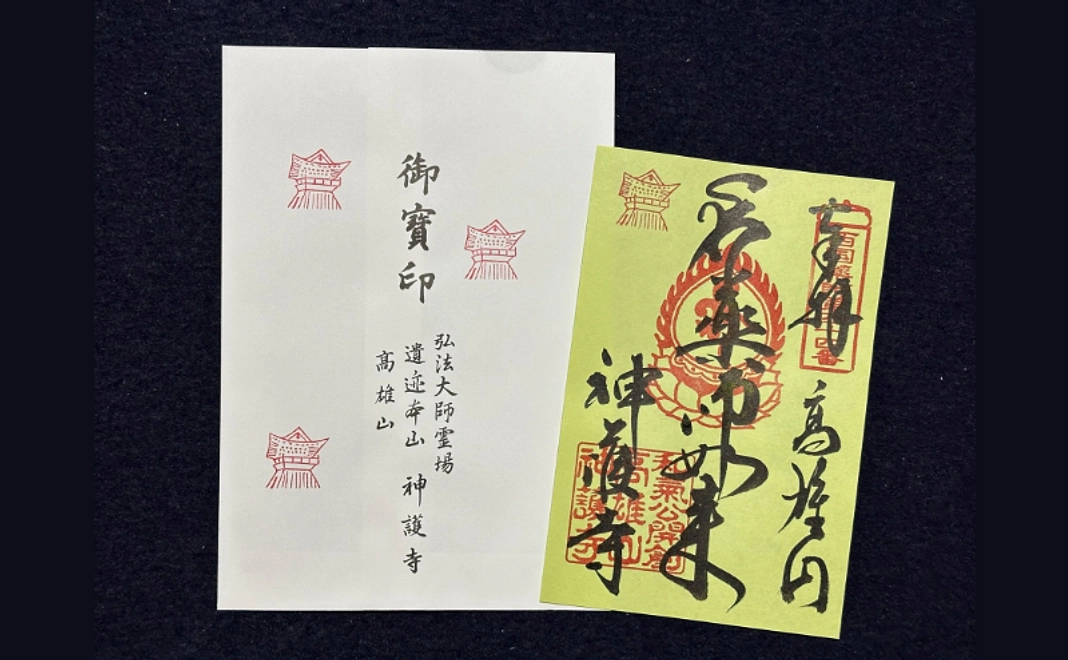 御寶印
弘法大師霊場
遺迹本山 神護寺
高雄山
奉拝 高雄山
薬師如来
神護寺
和氣公開創
高雄山
神護寺